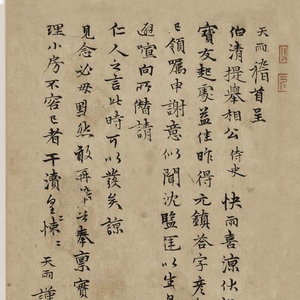 天雨𥡴首至
伯清提舉相公 侍史 快雨喜涼伏
寶友起處益佳昨得元鎮答字
已領囑申謝意似聞沈監匡以生
迺喧向所僭請
仁人之言此時可以發矣諒
見念必毋默然敢再奉稟實
理小房不容已者干瀆皇悚
天雨謹